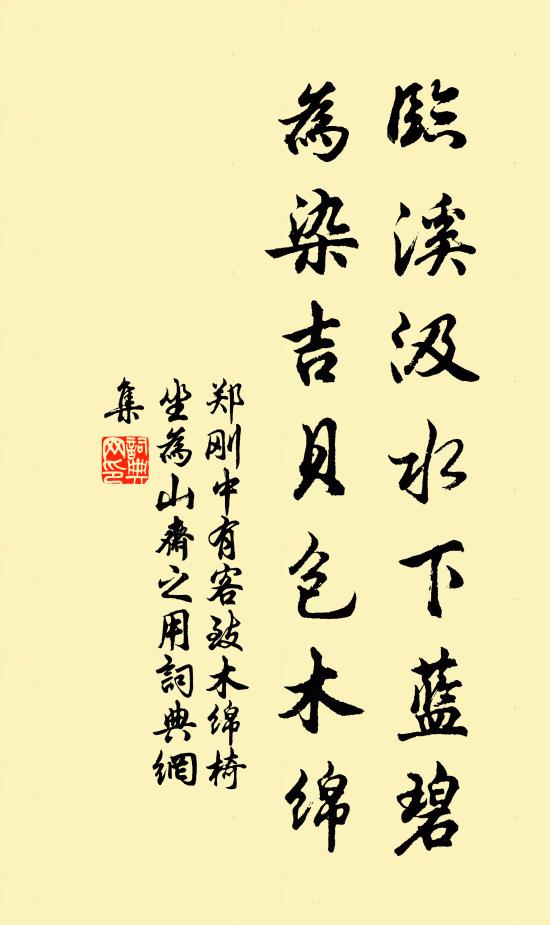 臨溪汲水下藍碧
為染吉貝包木绵
郑刚中有客致木绵椅
坐為山齋之用詞典網
集
詞典
网印